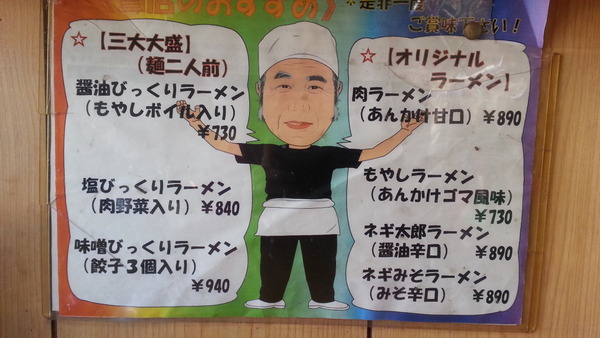 店のおすすめ》
*是非一度
ご賞味下さい！
☆【三大大盛】
（麺二人前）
醤油びっくりラーメン
（もやしボイル入り）
￥730
塩びっくりラーメン
（肉野菜入り）￥840
味噌びっくりラーメン
（餃子３個入り）
￥940
☆【オリジナル
ラーメン】
肉ラーメン
（あんかけ甘口）￥890
もやしラーメン
（あんかけゴマ風味）
￥730
ネギ太郎ラーメン
（醤油辛口）￥890
ネギみそラーメン
（みそ辛口）￥890